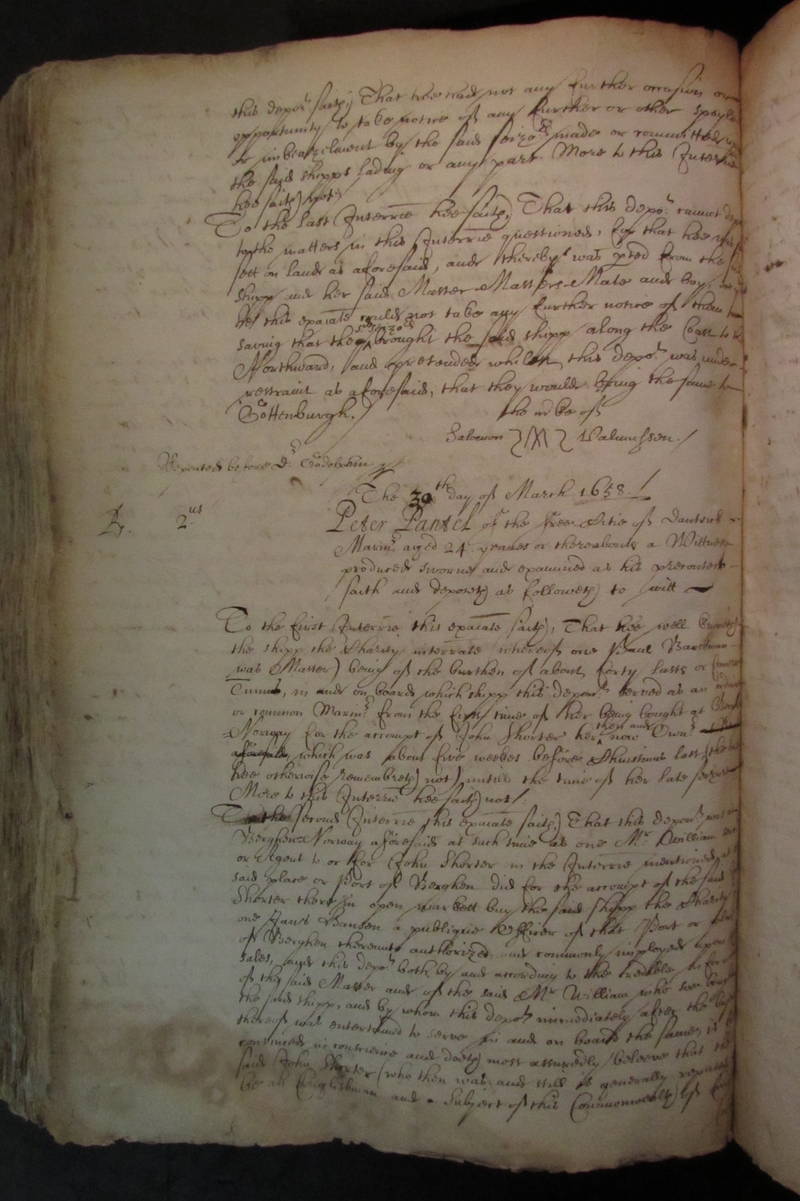 this depo:t saith That hee had not any further occasion or
opportunity to take notice of any further or other spoyle
or imbeazlement by the said made or committed
the said shipps lading or any part. More to this Interrie
hee saith not:
To the last Interrie hee saith, That this depo:t cannot
to the matters in this Interrie questioned, for that hee was
sett on land as aforesaid, and thereby was pted from the
shipp and her said Master Masters Mate and boy,
hee this exa:iate could not take any further notice of them
saving that the brought the said shipp along the Coast to
Northward, and pretended whilest this depo:t was under
restraint as aforesaid, that they would bring the same to
Gottenburgh./
the marke of
Salomon Walmssen./
Repeated before Dr Godolphin
The 30th day of March 1658./
2us
Peter Pantel of the free Citie of Dantsick
Marin:r aged 24 yeares or thereabouts a Wittnes
produced sworne and examined as his precontest
saith and deposeth as followeth to witt
To the first Interrie this exa:iate saith, That hee well knoweth
the shipp the Charity interrate whereof one Paul
was Master) being of the burthen of about forty lasts or
Tunns, in and on board which shipp this depon:t served as an
or common Marin:r from the first time of her being bought at
Norway for the accompt of John Shorter her then and now Own:r
aforesaid, which was about five weekes before Christmas last
hee otherwise remembreth not) untill the time of her late seizure
More to this Interrie hee saith not/
To the second Interrie this exa:iate saith, That this depon:t
Berghen Norway aforesaid at such time as one Mr William
or Agent to or for John Shorter in the Interrie mentioned
said place or Port of Berghen did for the accompt of the said
Shorter there in open markett buy the said shipp the Charity
one Jans Hansen a publique Officer of that Port or
of Berghen thereunto authorized and commonly imployed
sales, and this depo:t both by and according to the
of the said Master and of the said Mr William who soe
the said shipp, and by whom this depo:t immediately after the
thereof was entertained to serve in and on board the same, is
convinced in conscience and doeth most assuredly beleeve that the
said John Shorter (who then was and still is generally reputed
be an Englishman and a Subject of this Commonwealth) of